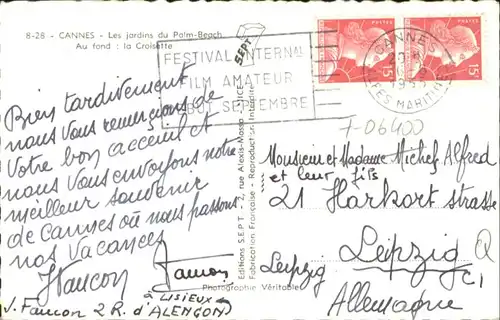 8-28 - CANNES - Les jardins du Palm-Beach
Au fond : la Croisette
FESTIVAL INTERNAL
FILM AMATEUR
DEBUT SEPTEMBRE
SEPT
CANNES
ALPES MARITIMES
15F
15F
+ 06400
Bien tardivement
nous vous remercions de
votre bon acceuil et
nous vous envoyons notre
meilleur souvenir
de Cannes où nous passons
nos vacances
Editions S.E.P.T - 2, rue Alexis-Mossa - NICE
Fabrication Française - Reproduction Interdite
Photographie Véritable
Monsieur et Madame Michel Alfred
et leur fils
21 Harkort strasse
Leipzig Leipzig C1
Allemagne
à LISIEUX
2 R. d'ALENÇON